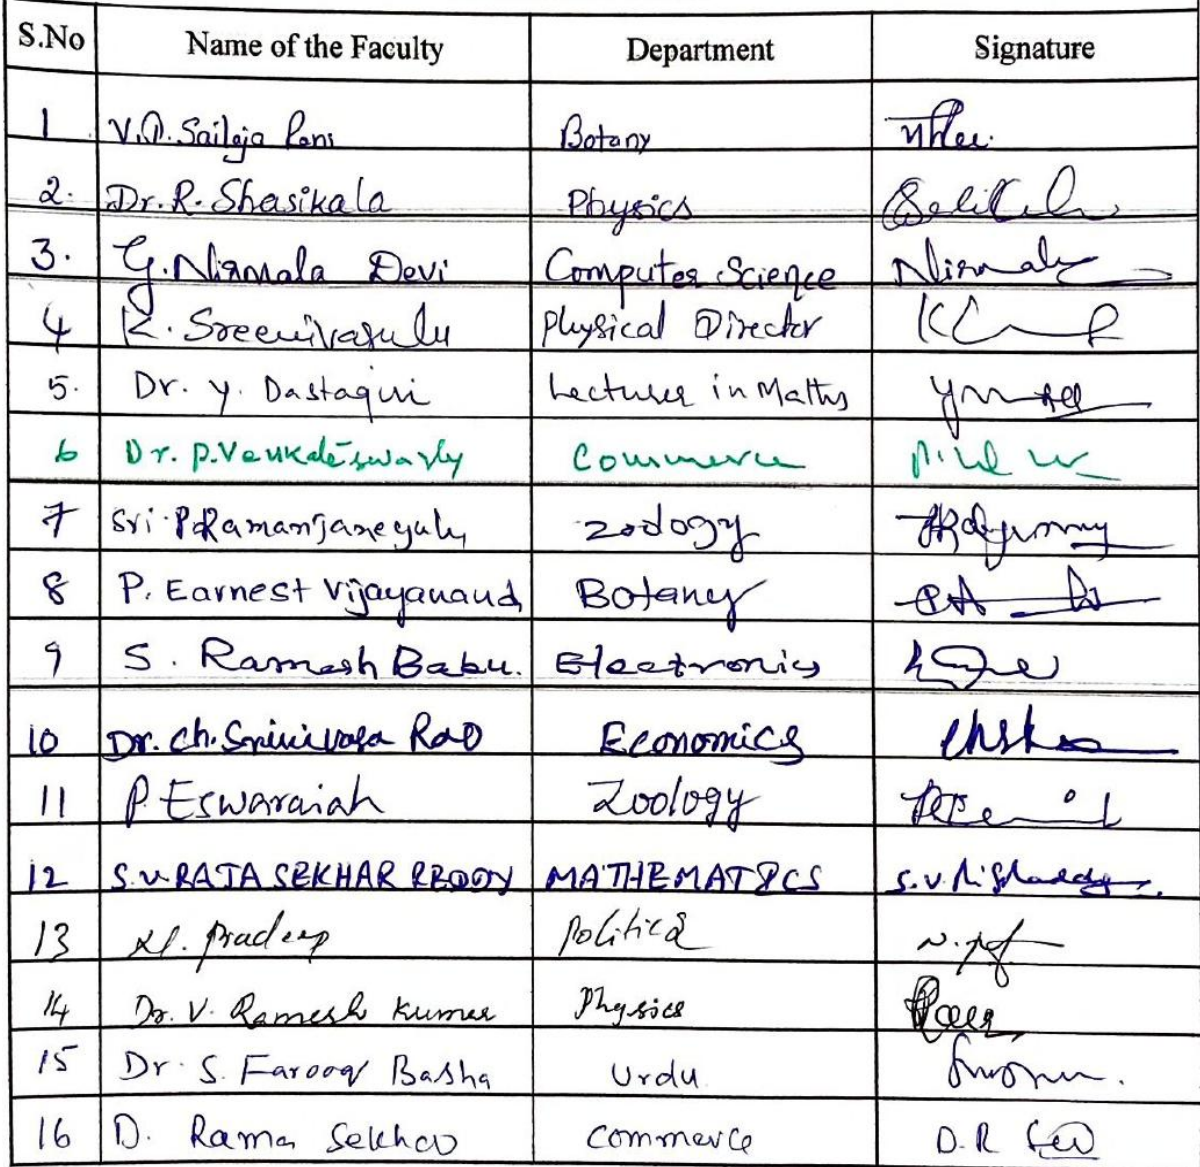 S.No Name of the Faculty Department Signature
1 V.D. Sailaja Rani Botany
2. Dr. R. Shasikala Physics
3. G. Nirmala Devi Computer Science Nirmala
4 K. Sreenivasulu Physical Director
5. Dr. Y. Dastagiri Lecturer in Maths
6 Dr. P. Venkateswarly Commerce
7 Sri P Ramanjaneyulu Zoology
8 P. Earnest Vijayanand Botany
9 S. Ramesh Babu. Electronics
10 Dr. Ch. Srinivasa Rao Economics
11 P. Eswaraiah Zoology
12 S.V. RAJA SEKHAR REDDY MATHEMATICS
13 Pradeep Political
14 Dr. V. Ramesh Kumar Physics
15 Dr. S. Farooq Basha Urdu
16 D. Rama Sekhar Commerce D.R